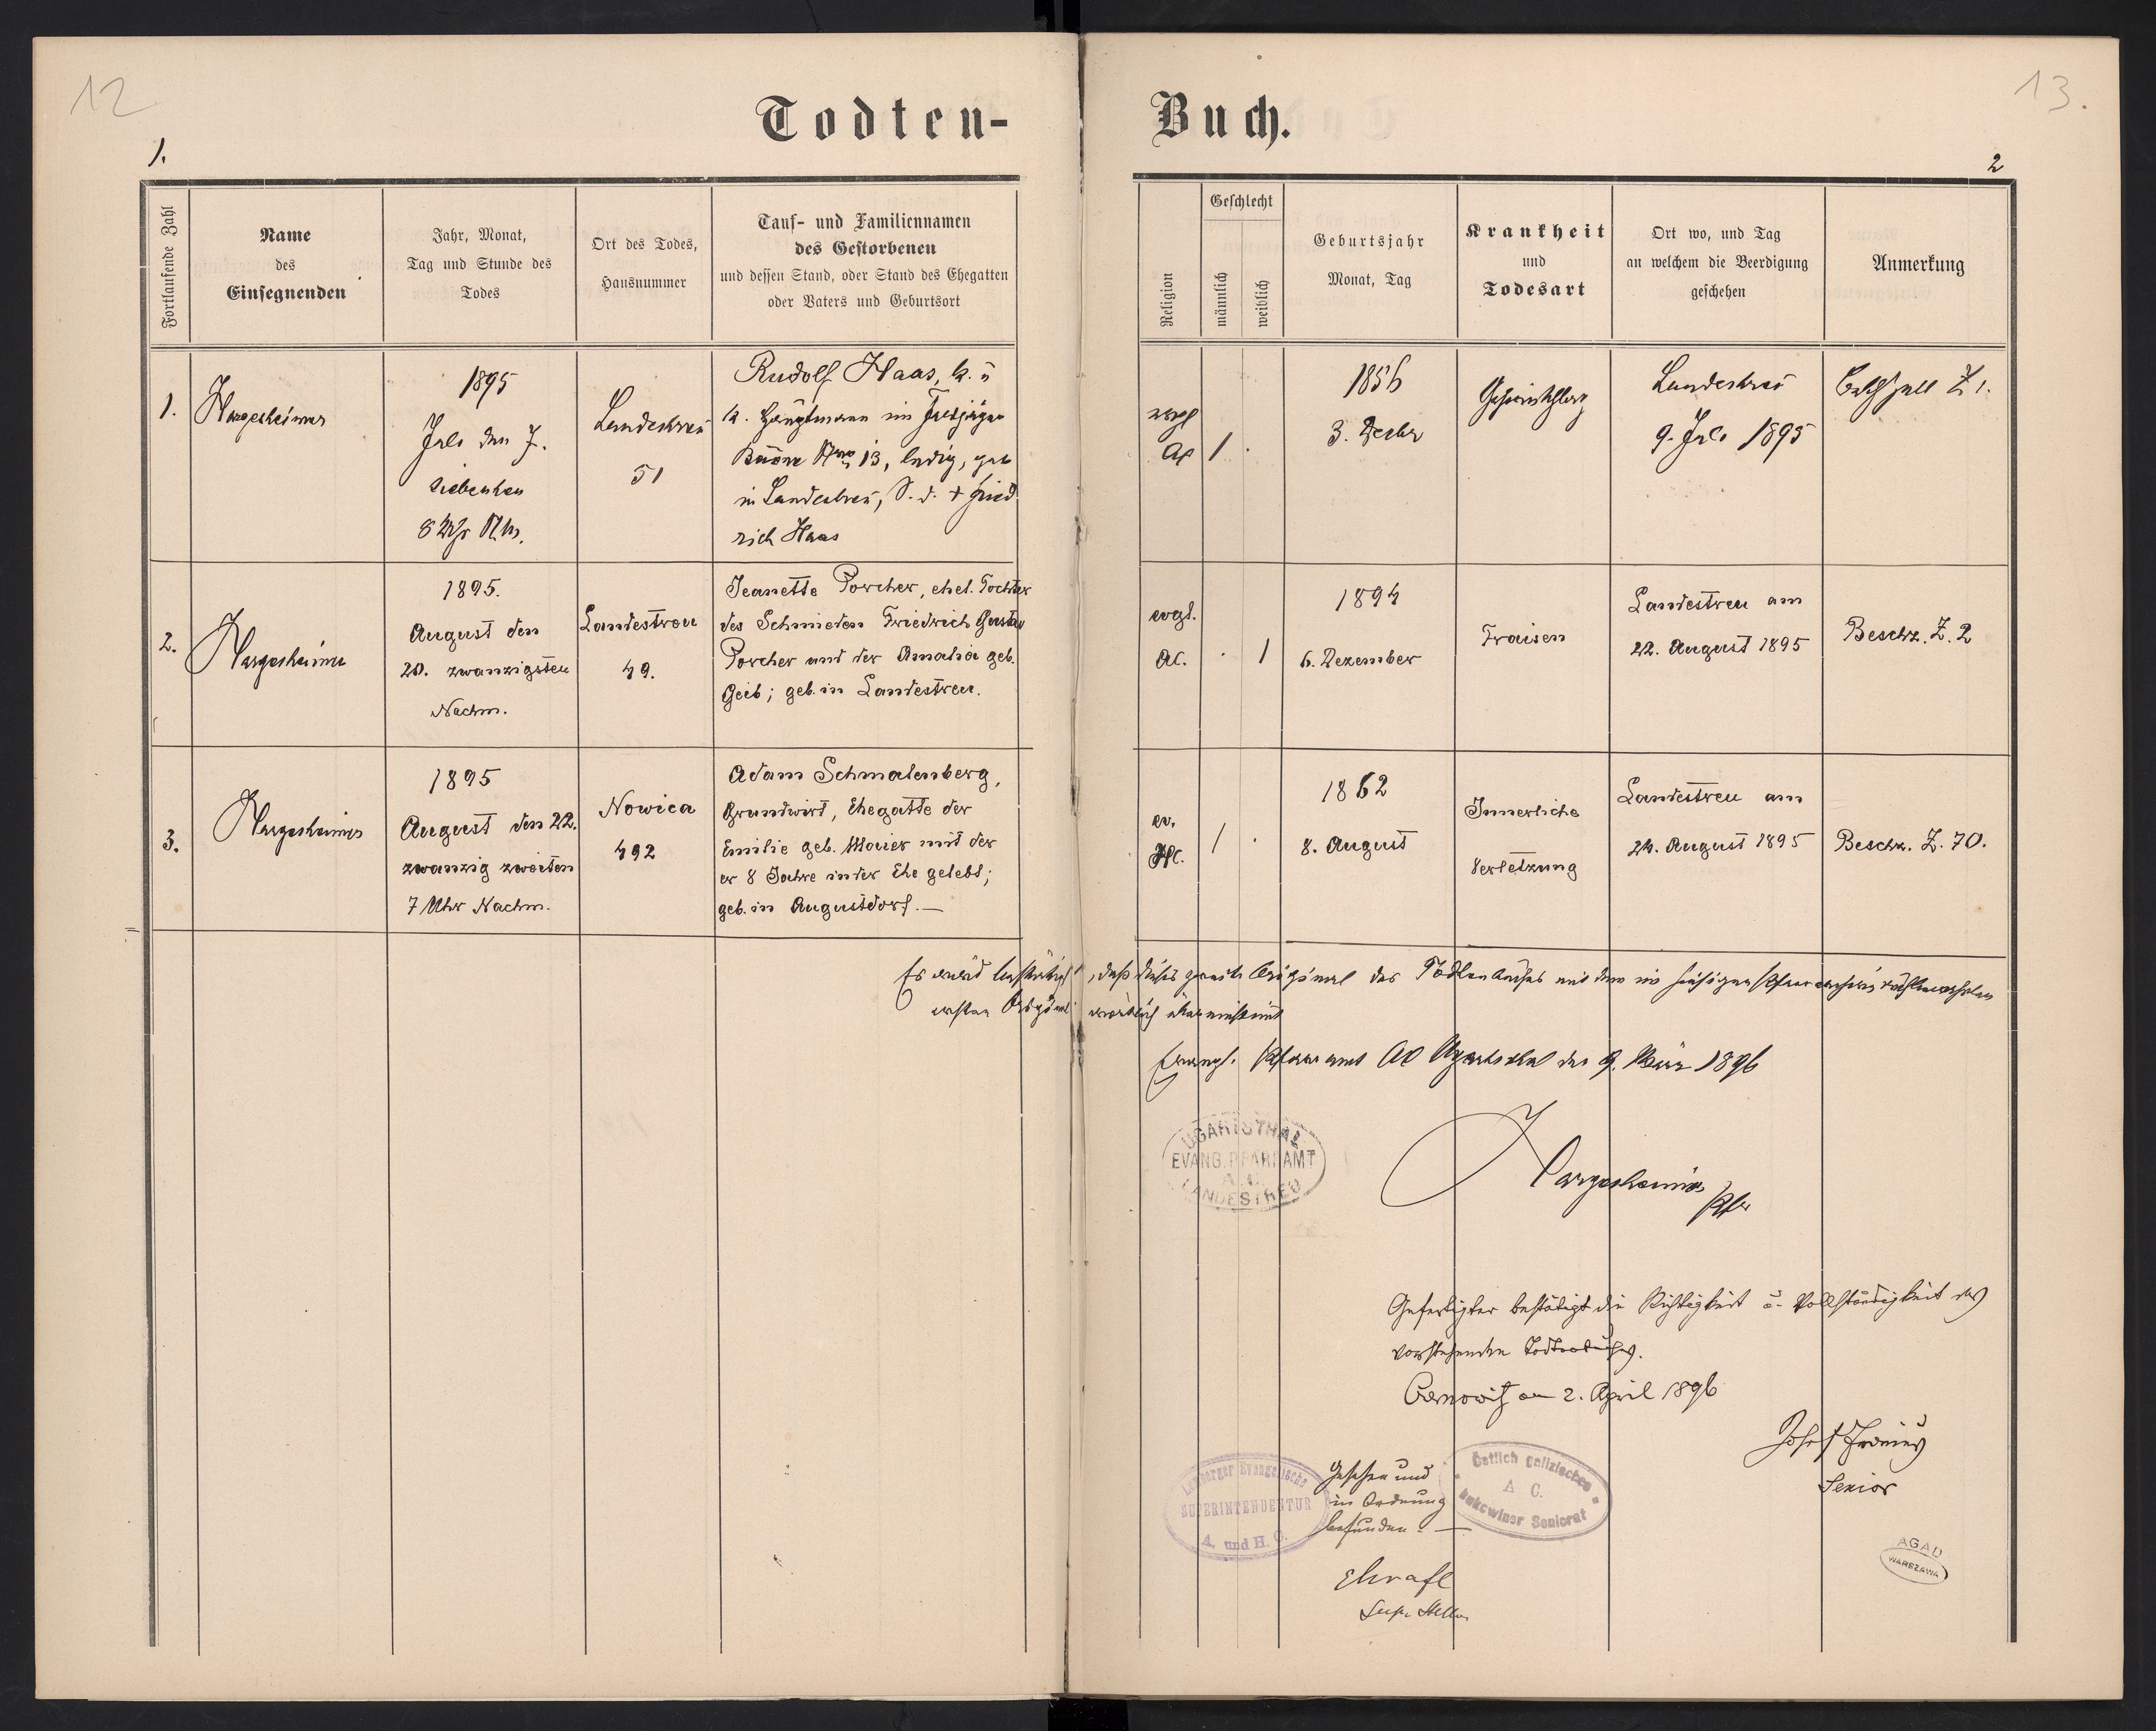 12
13.
Todten-Buch.
1.
2
Fortlaufende Zahl
Name
des
Einsegnenden
Jahr, Monat,
Tag und Stunde des
Todes
Ort des Todes,
Hausnummer
Tauf- und Familiennamen
des Gestorbenen
und dessen Stand, oder Stand des Ehegatten
oder Vaters und Geburtsort
Religion
Geschlecht
männlich
weiblich
Geburtsjahr
Monat, Tag
Krankheit
und
Todesart
Ort wo, und Tag
an welchem die Beerdigung
geschehen
Anmerkung
1.
Hargesheimer
1895
Juli den 7.
siebenten
8 Uhr N.M.
Landestreu
51
Rudolf Haas, k. u
k. Hauptmann im Feldjäger
Baone Nro 13, ledig, geb
in Landestreu, S. d. + Fried
rich Haas
evgl
AC
1
1856
3.
Gehirnschlag
Landestreu
9. Juli 1895
Z 1.
2.
Hargesheimer
1895.
August den
20. zwanzigsten
Nachm.
Landestreu
49.
Jeanette Porcher, ehel. Tochter
des Schmieden Friedrich Gustav
Porcher und der Amalia geb.
Geib; geb. in Landestreu.
evgl.
AC.
1
1894
6. Dezember
Fraisen
Landestreu am
22. August 1895
Beschz. Z. 2
3.
Hargesheimer
1895
August den 22.
zwanzig zweiten
7 Uhr Nachm.
Nowica
492
Adam Schmalenberg,
Grundwirt, Ehegatte der
Emilie geb. Maier mit der
er 8 Jahre in der Ehe gelebt;
geb. in Augustdorf. —
ev.
HC.
1
1862
8. August
Innerliche
Verletzung
Landestreu am
24. August 1895
Beschz. Z. 70.
Es wird bestätigt, daß dieses zweite Original des Todtenbuches mit dem im hiesigen Pfarrarchiv
ersten Original wörtlich übereinstimmt
Evangl. Pfarramt AC Ugartsthal den 9. März 1896
UGARTSTHAL
EVANG. PFARRAMT
A. C.
LANDESTREU
Hargesheimer
Pfr
Gefertigter bestätigt die Richtigkeit u. Vollständigkeit des
vorstehenden Todtenbuches.
Czernowitz am 2. April 1896
Josef Fronius
Senior
Lemberger Evangelische
SUPERINTENDENTUR
A. und H. C.
Gesehen und
in Ordnung
befunden. —
Östlich galizisches
A. C.
bukowiner Seniorat
AGAD
WARSZAWA